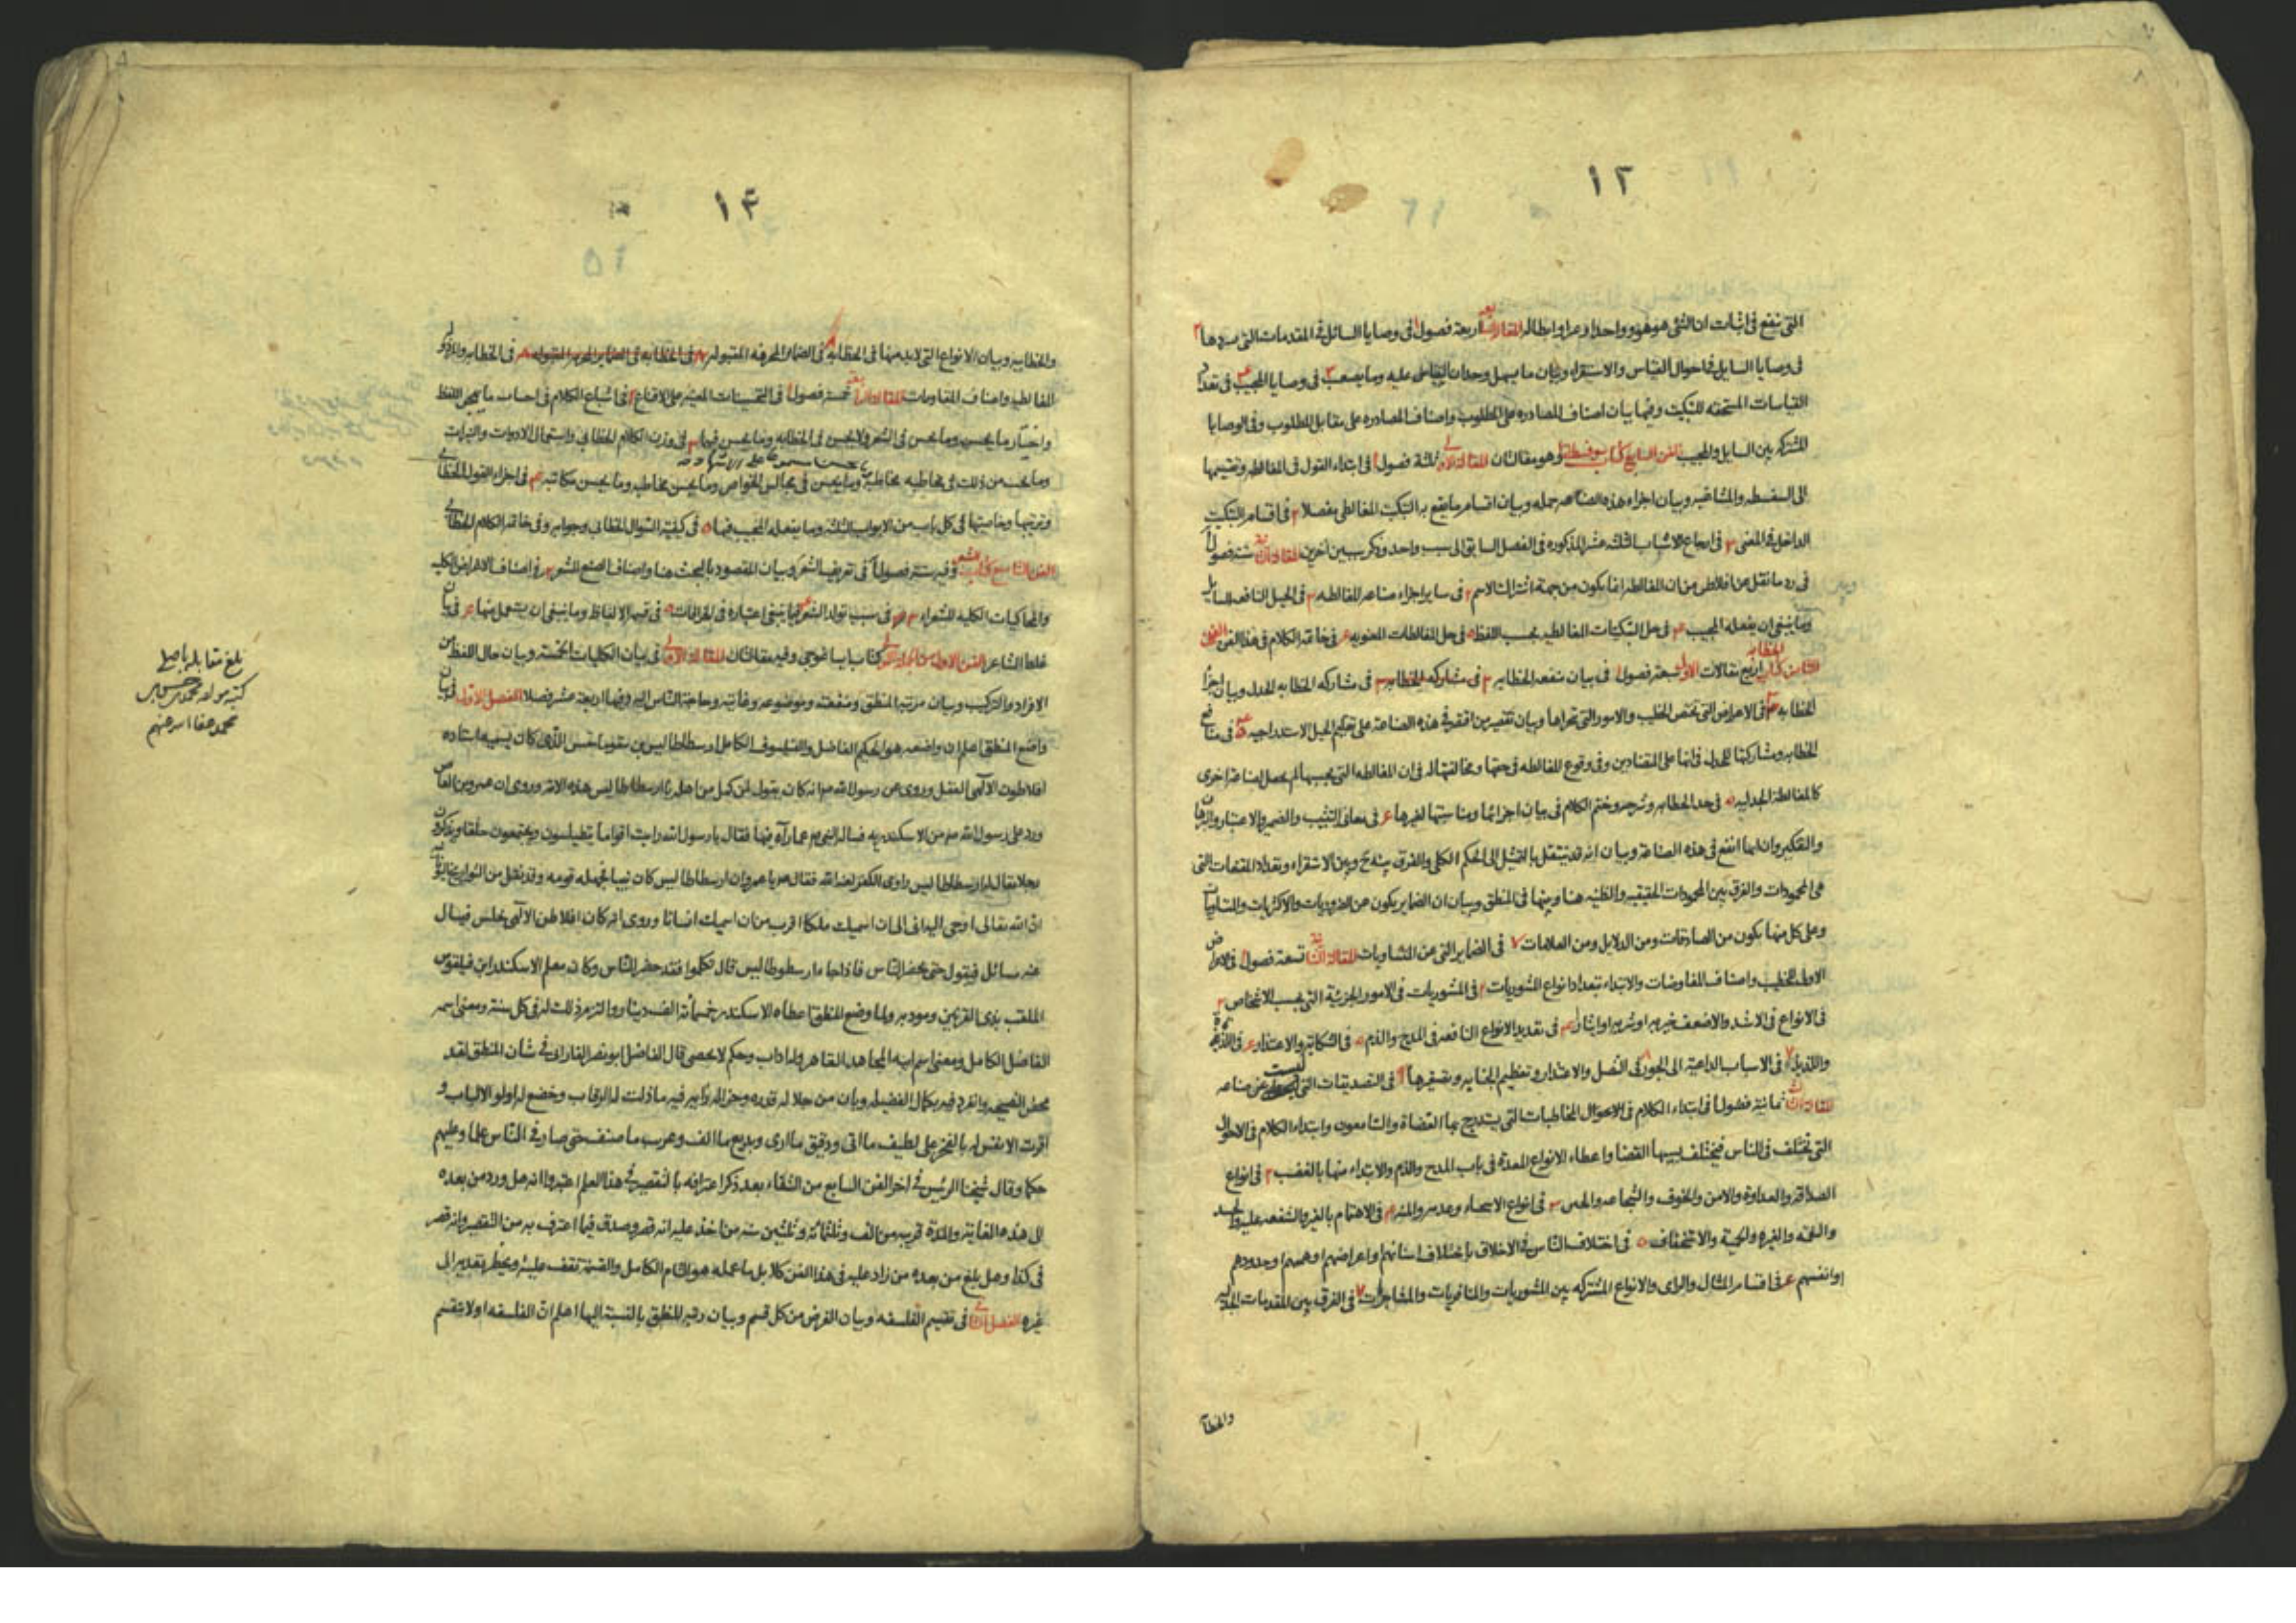 ١٢
التى ينفع فى اثبات ان الشئ هو هو وواحد او ابطاله المقالة الرابعة اربعة فصول ا فى وصايا السائل فى المقدمات التى يوردها ٢
فى وصايا السايل فى احوال القياس والاستقراء وبيان ما يسهل وجدان القياس عليه وما يصعب ٣ فى وصايا المجيب ٤ فى تعداد
القياسات المستحقه للتبكيت وفيها بيان اصناف المصادره على المطلوب واصناف المصادره على مقابل المطلوب وفى الوصايا
المشتركه بين السايل والمجيب الفن السابع كتاب سوفسطيقا وهو مقالتان المقالة الاولى ثلثة فصول ا فى ابتداء القول فى المغالطه وتقسيمها
الى السفسطه والمشاغبه وبيان اجزاء هذه الصناعه جمله وبيان اقسام ما يقع به التبكيت المغالطى مفصلا ٢ فى اقسام التبكيت
الداخل فى المعنى ٣ فى ارجاع الاسباب الثلثه عشر المذكوره فى الفصل السابق الى سبب واحد وذكر سببين اخرين المقالة الثانية ستة فصول ا
فى رد ما نقل عن افلاطن من ان المغالطه انما يكون من جهة اشتراك الاسم ٢ فى ساير اجزاء صناعه المغالطه ٣ فى الحيل النافعه للسايل
وما ينبغى ان يفعله المجيب ٤ فى حل التبكيتات المغالطيه بحسب اللفظ ٥ فى حل المغالطات المعنويه ٦ فى خاتمة الكلام فى هذا الفن الفن
الثامن كتاب الخطابه اربع مقالات الاولى سبعة فصول ا فى بيان منفعه الخطابه ٢ فى مشاركه الخطابه ٣ فى مشاركه الخطابه للجدل وبيان اجزاء
الخطابه ٤ فى الاعراض التى تخص الخطيب والامور التى تحراها وبيان تقصير من اقتصر فى هذه الصناعة على تعليم الحيل الاستدراجيه ٥ فى منافع
الخطابه ومشاركتها للجدل فى انها على المتضادين وفى وقوع المغالطه فى حقها ومخالفتها له فى ان المغالطه التى بحسبها لم يحصل لصناعة اخرى
كالمغالطة الجدليه ٥ فى حد الخطابه وشرحه وختم الكلام فى بيان اجزائها ومناسبتها لغيرها ٦ فى معانى التثبيت والضمير والاعتبار والبرهان
والتفكير وان ايها انفع فى هذه الصناعة وبيان انه قد ينتقل بالتمثيل الى الحكم الكلى والفرق بينه وبين الاستقراء وتعداد المقدمات التى
هى المحمودات والفرق بين المحمودات الحقيقيه والظنيه هنا وبينها فى المنطق وبيان ان الضماير يكون عن الضروريات والاكثريات والمتساويات
وعلى كل منها يكون من الصادقات ومن الدلايل ومن العلامات ٧ فى الضماير التى عن المتساويات المقالة الثانية تسعة فصول ا فى الاغراض
الاوليه للخطيب واصناف المفاوضات والابتداء بتعداد انواع المشوريات ٢ فى المشوريات فى الامور الجزئية التى بحسب الاشخاص ٣
فى الانواع فى الاشد والاضعف خيريه او شريه او ايثارا ٤ فى تقديم الانواع النافعه فى المدح والذم ٥ فى الشكايه والاعتذار ٦ فى اللذه
واللذيذ ٧ فى الاسباب الداعية الى الجور ٨ فى التنصل والاعتذار وتعظيم الجنايه وتصغيرها ٩ فى التصديقات التى ليست عن صناعه
المقالة الثالثة ثمانية فصول ا فى ابتداء الكلام فى الاحوال المخاطبات التى يستدرج بها القضاة والسامعون وابتداء الكلام فى الاحوال
التى تختلف فى الناس فيختلف بسببها القضا واعطاء الانواع المعدة فى باب المدح والذم والابتداء منها بالغضب ٢ فى انواع
الصداقه والعداوة والامن والخوف والشجاعه والجبن ٣ فى انواع الاستحياء وعدمه والمنه ٤ فى الاهتمام بالغير والشفقه عليه والحسد
والنقمه والغيره والحمية والاستخفاف ٥ فى اختلاف الناس فى الاخلاق باختلاف اسنانهم واعراضهم وهممهم وجدودهم
وانفسهم ٦ فى اقسام المثال والراى والانواع المشتركه بين المشوريات والمنافريات والمشاجرات ٧ فى الفرق بين المقدمات الجدليه
والخطا
١٤
والخطابيه وبيان الانواع التى لابد منها فى الخطابه ٨ فى الضماير المحرفه المقبوله فى الخطابه والمردوده
المغالطيه واصناف المقاومات المقالة الرابعة خمسة فصول ا فى التحسينات المعينه على الاقناع ٢ فى اشباع الكلام فى اجتناب ما يهجن اللفظ
واختيار ما يحسن وما يحسن فى الشعر ولا يحسن فى الخطابه وما يحسن فيهما ٣ فى وزن الكلام الخطابى واستعمال الادوات والنبرات
وما يحسن من ذلك فى مخاطبه مخاطبه وما يحسن فى مجالس الخواص وما يحسن مخاطبه وما يحسن مكاتبه ٤ فى اجزاء القول الخطابى
وترتيبها وخاصيتها فى كل باب من الابواب الثلثه وما يفعله المجيب فيها ٥ فى كيفية السؤال الخطابى وجوابه وفى خاتمه الكلام الخطابى
الفن التاسع كتاب الشعر وفيه ستة فصول ا فى تعريف الشعر وبيان المقصود بالبحث هنا واصناف الصنع للشعر ٢ فى اصناف الاغراض الكليه
والمحاكيات الكليه للشعراء ٣ فى سبب تولد الشعر ٤ فيما ينبغى اعتباره فى الخرافات ٥ فى قسم الالفاظ وما ينبغى ان يستعمل منها ٦ فى بيان
غلط الشاعر الفن الاول من الجملة الاولى كتاب ايساغوجى وفيه مقالتان المقالة الاولى فى بيان الكليات الخمسة وبيان حال اللفظ من
الافراد والتركيب وبيان مرتبة المنطق ومنفعته وموضوعه وغايته وحاجة الناس اليه وفيها اربعة عشر فصلا الفصل الاول فى بيان
واضع المنطق اعلم ان واضعه هو الحكيم الفاضل والفيلسوف الكامل ارسطاطاليس بن نيقوماخس الذى كان يسميه استاده
افلاطون الالهى العقل وروى عن رسول الله صم انه كان يقول لمن كمل من اهله يا ارسطاطاليس هذه الامة وروى ان عمرو بن العاص
ورد على رسول الله صم من الاسكندريه فساله النبى صم عما رآه فيها فقال يا رسول الله رايت اقواما يتطيلسون ويجتمعون حلقا ويذكرون
رجلا يقال له ارسطاطاليس راوى الكفر لعنه الله فقال صم يا عمرو ان ارسطاطاليس كان نبيا فجهله قومه وقد نقل من التواريخ اليونانيه
ان الله تعالى اوحى اليه انى الى ان اسميك ملكا اقرب من ان اسميك انسانا وروى انه كان افلاطن الالهى يجلس فيسال
عنه مسائل فيقول حتى يحضر الناس فاذا جاء ارسطوطاليس قال تكلموا فقد حضر الناس وكان معلم الاسكندر ابن فيلقوس
الملقب بذى القرنين ومودبه ولما وضع المنطق اعطاه الاسكندر خمسمائة الف دينار والتزم ذلك له فى كل سنة ومعنى اسمه
الفاضل الكامل ومعنى اسم ابيه المجاهد القاهر وله اداب وحكم لا تحصى قال الفاضل ابو نصر الفارابى فى شان المنطق لقد
محض النصيحه وانفرد فيه بكمال الفضيله وبان من جلاله قدره وجزاله رايه فيه ما ذلت له الرقاب وخضع له اولو الالباب و
اقرت الانفس له بالفخر على لطيف ما اتى ودقيق ما ادى وبديع ما الف وعرب ما صنف حتى صار فى الناس علما وعليهم
حكما وقال شيخنا الرئيس فى اخر الفن السابع من الشفاء بعد ذكر اعترافه بالتقصير فى هذا العلم اعتبروا انه هل ورد من بعده
الى هذه الغاية والمدة قريب من الف وثلثمائة وثلثين سنة من اخذ عليه انه قصر وصدق فيما اعترف به من التقصير وانه قصر
فى كذا وهل بلغ من بعده من زاد عليه فى هذا الفن كلا بل ما عمله هو التام الكامل والقسمة تقف عليه ويحظر تعديه الى
غيره الفصل الثانى فى تقسيم الفلسفه وبيان الغرض من كل قسم وبيان رتبه المنطق بالنسبة اليها اعلم ان الفلسفه اولا تنقسم
بلغ مقابله باصله
كتبه مولفه محمد حسين بن
محمد عفا الله عنهم